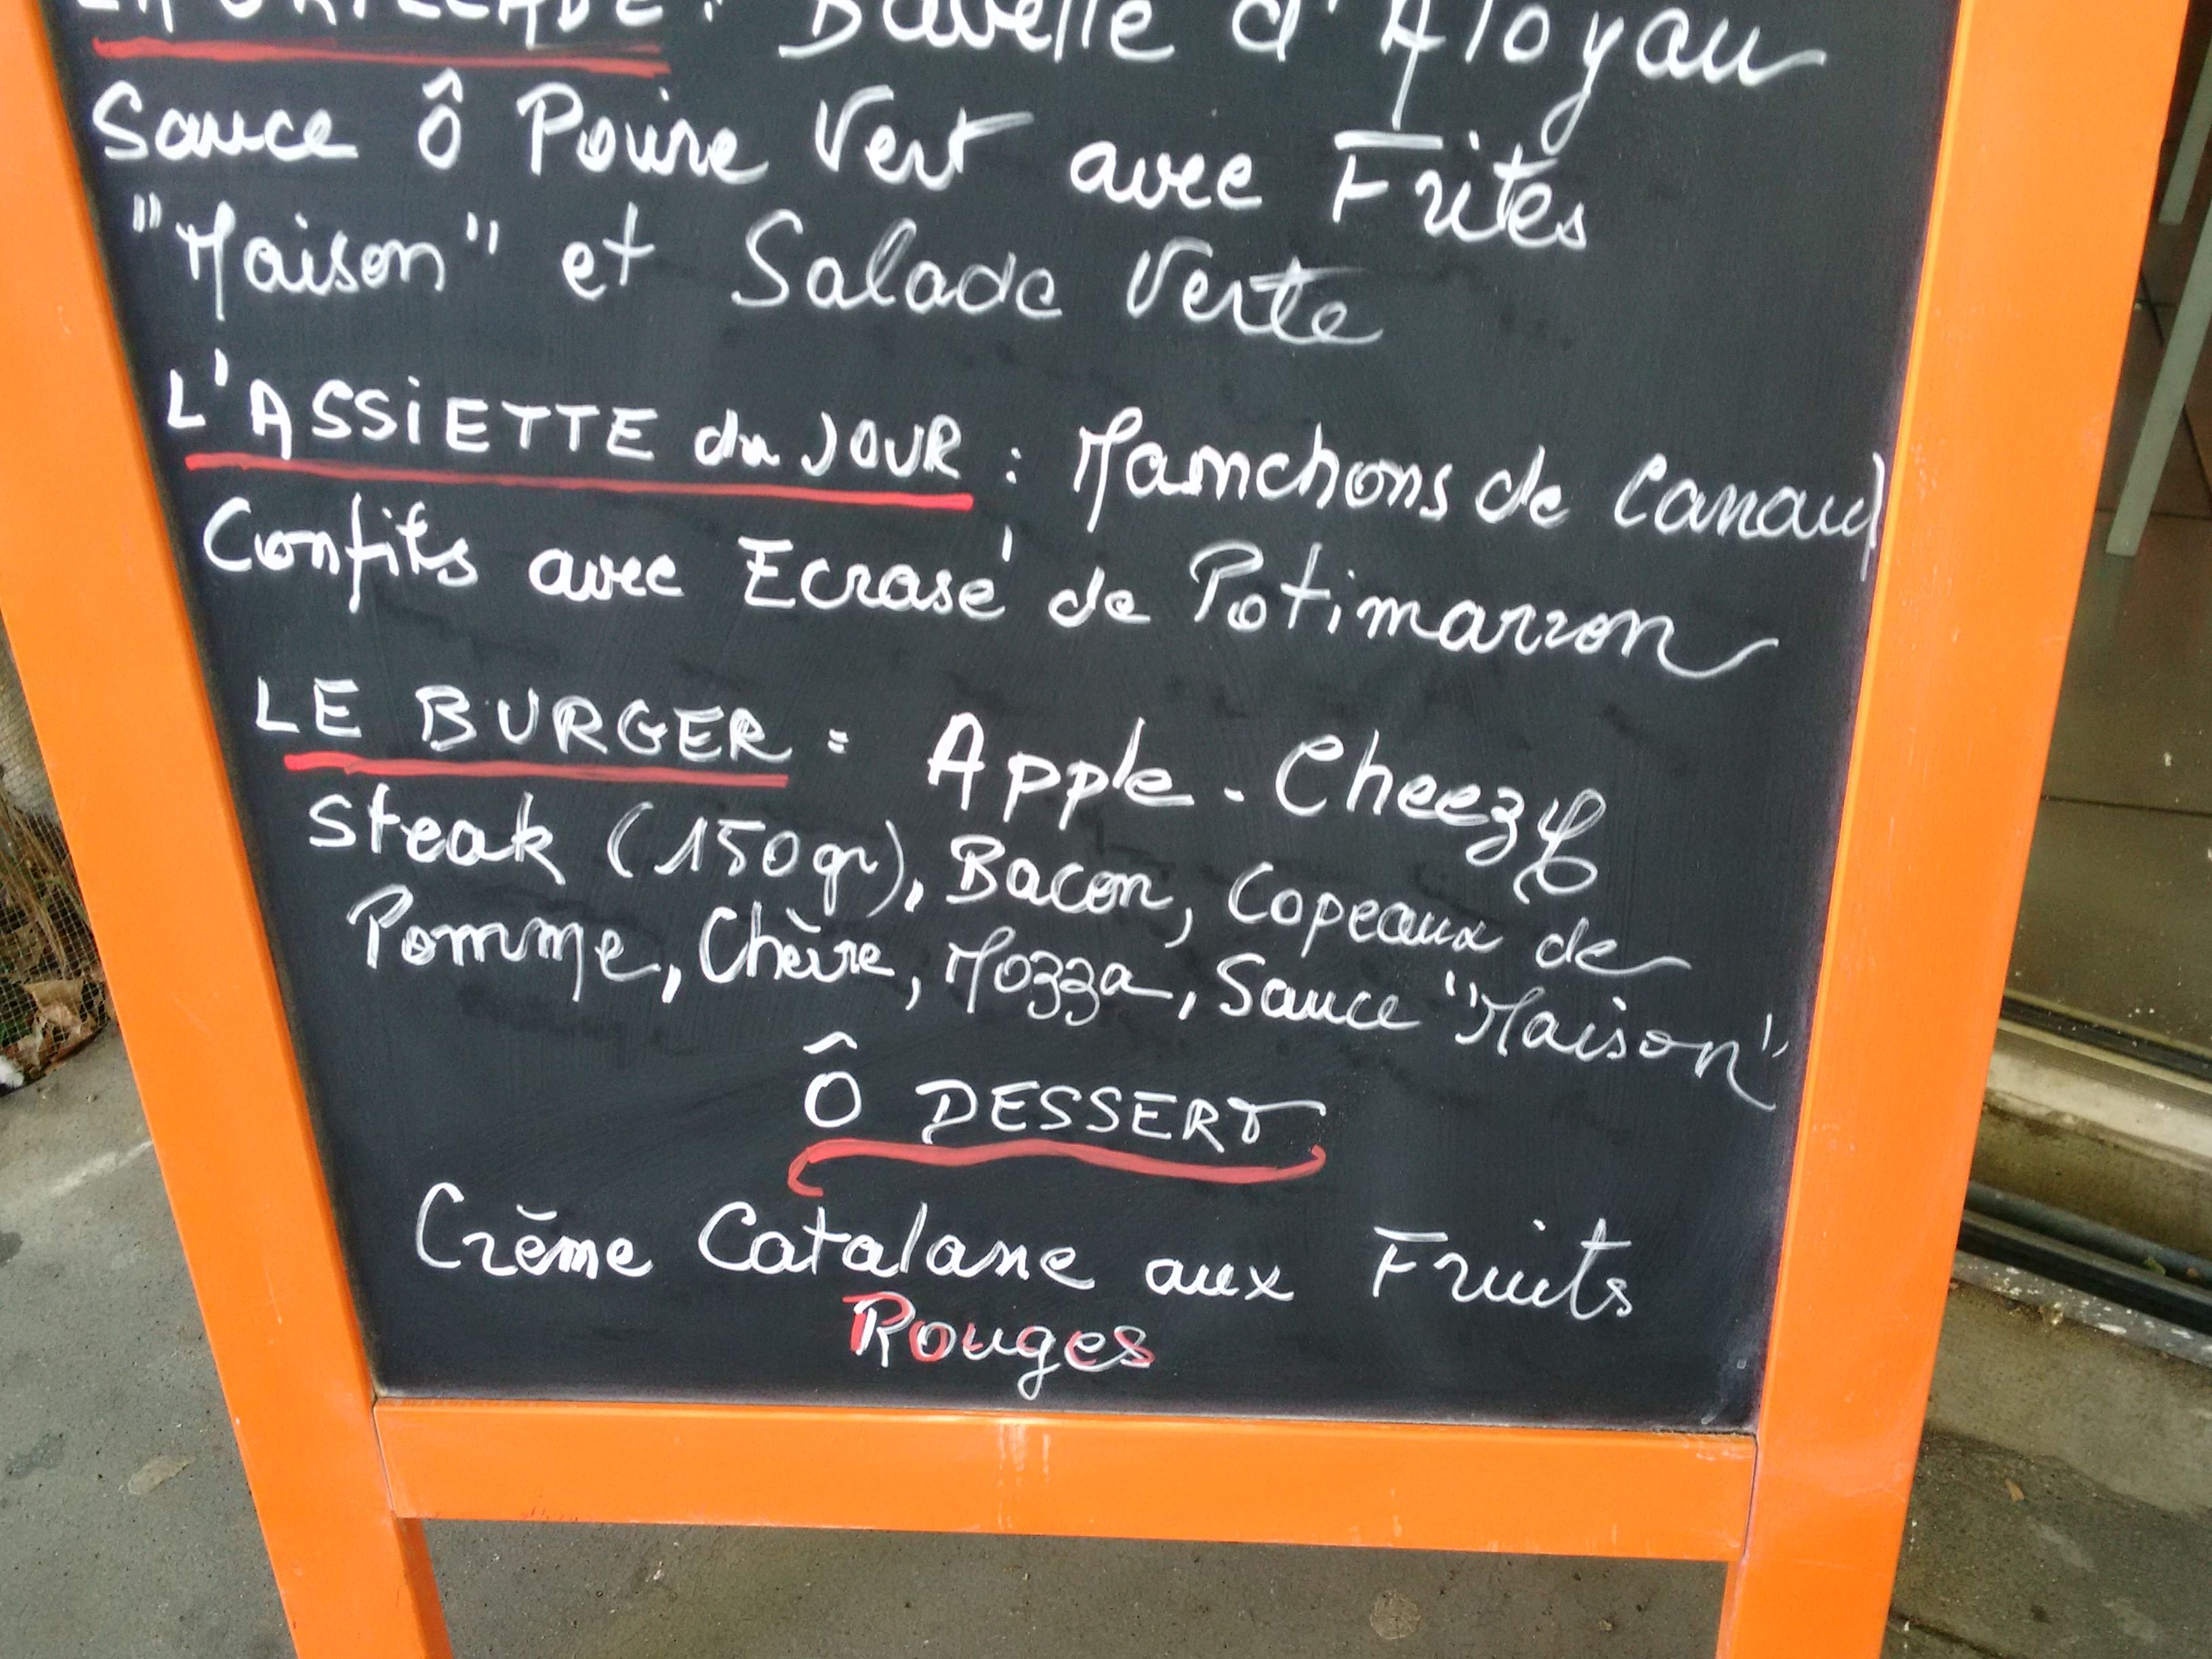 LA GRILLADE : Bavette d'Aloyau
Sauce Ô Poivre Vert avec Frites
"Maison" et Salade Verte
L'ASSiETTE du JOUR : Manchons de Canard
Confits avec Ecrasé de Potimarron
LE BURGER : Apple - Cheezy
Steak (150gr), Bacon, Copeaux de
Pomme, Chèvre, Mozza, Sauce "Maison"
Ô DESSERT
Crème Catalane aux Fruits
Rouges